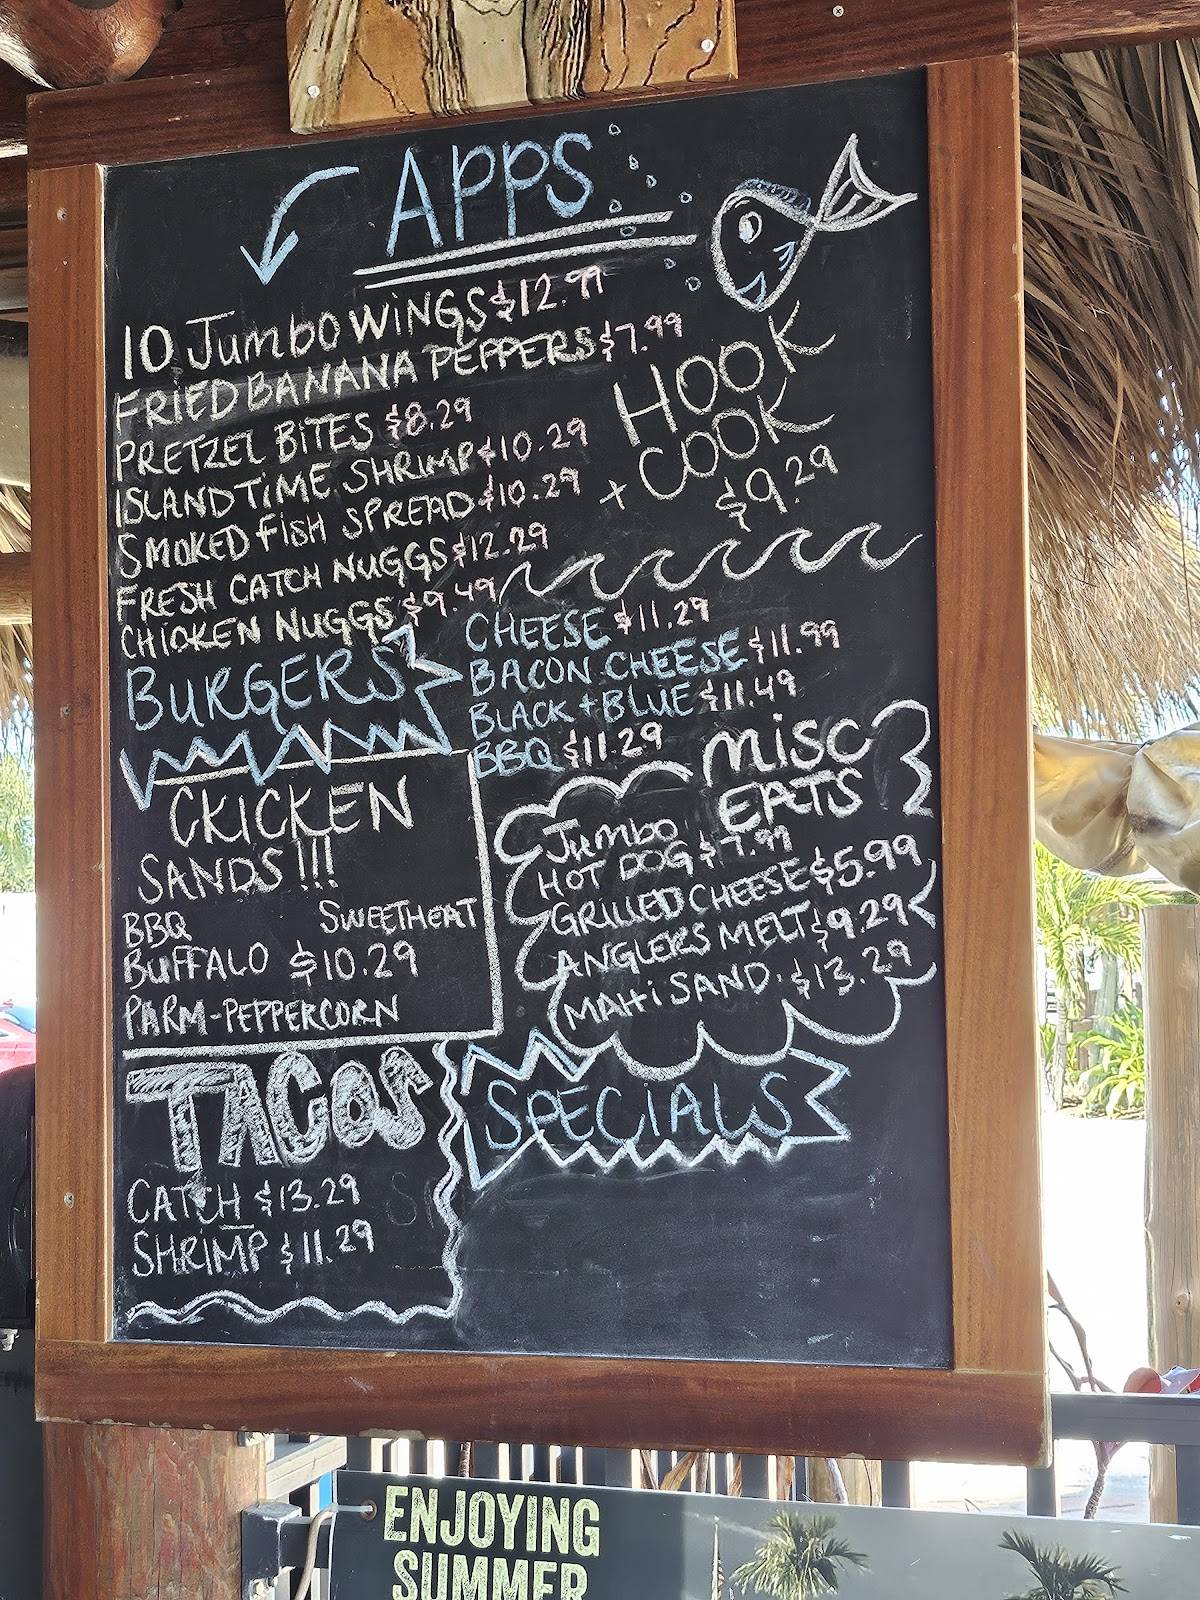 APPS
10 Jumbo WiNGS $12.99
FRIED BANANA PEPPERS $7.99
PRETZEL BITES $8.29
ISLAND TiME SHRIMP $10.29
SMOKED FiSH SPREAD $10.29
FRESH CATCH NUGGS $12.29
CHICKEN NUGGS $9.49
HOOK
+ COOK
$9.29
BURGERS
CHEESE $11.29
BACON CHEESE $11.99
BLACK + BLUE $11.49
BBQ $11.29
CKICKEN
SANDS!!!
BBQ SWEETHEAT
BUFFALO $10.29
PARM-PEPPERCORN
MiSC
EATS
Jumbo
HOT DOG $7.99
GRILLED CHEESE $5.99
ANGLERS MELT $9.29
MAHi SAND. $13.29
TACOS
CATCH $13.29
SHRIMP $11.29
SPECiALS
ENJOYING
SUMMER